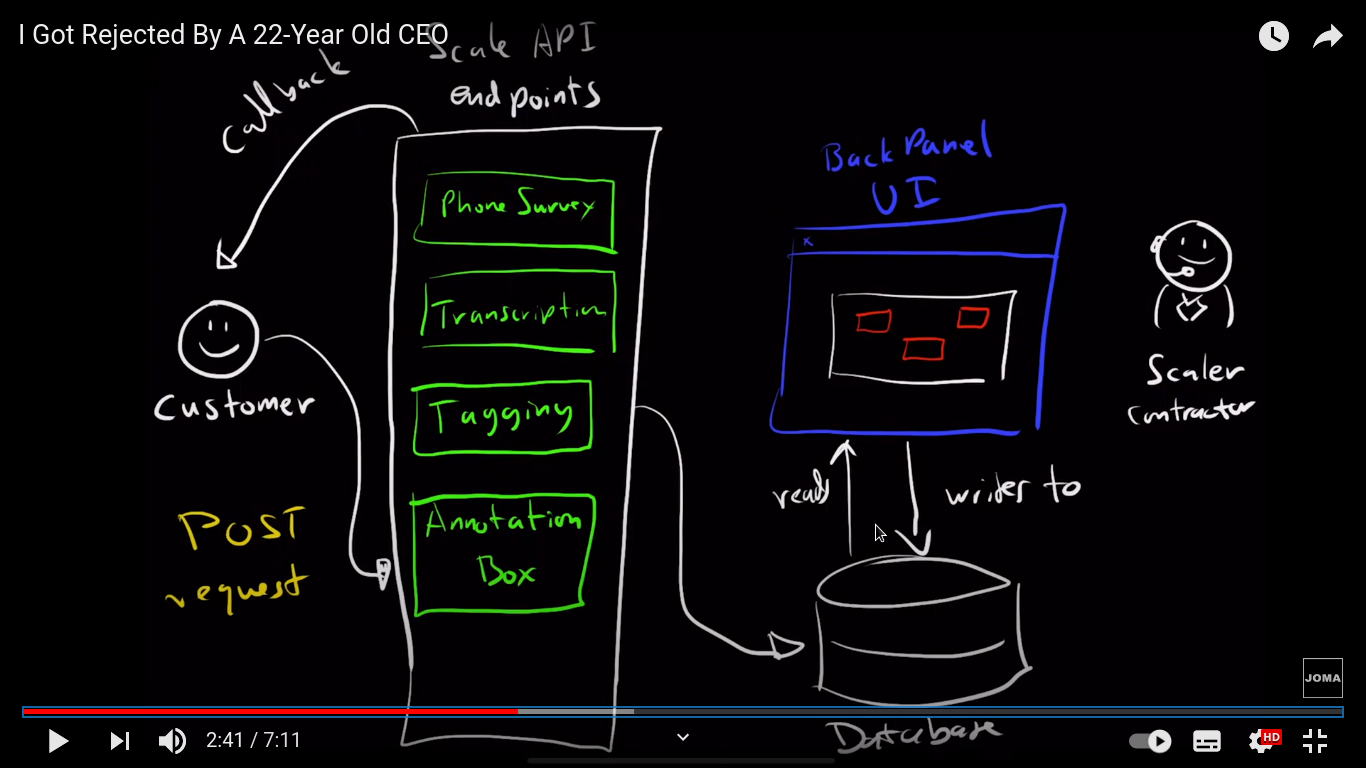 I Got Rejected By A 22-Year Old CEO
Scale API
endpoints
callback
Phone Survey
Transcription
Tagging
Annotation
Box
Customer
POST
request
BackPanel
UI
x
Scaler
contractor
reads
writes to
Database
JOMA
2:41 / 7:11
HD